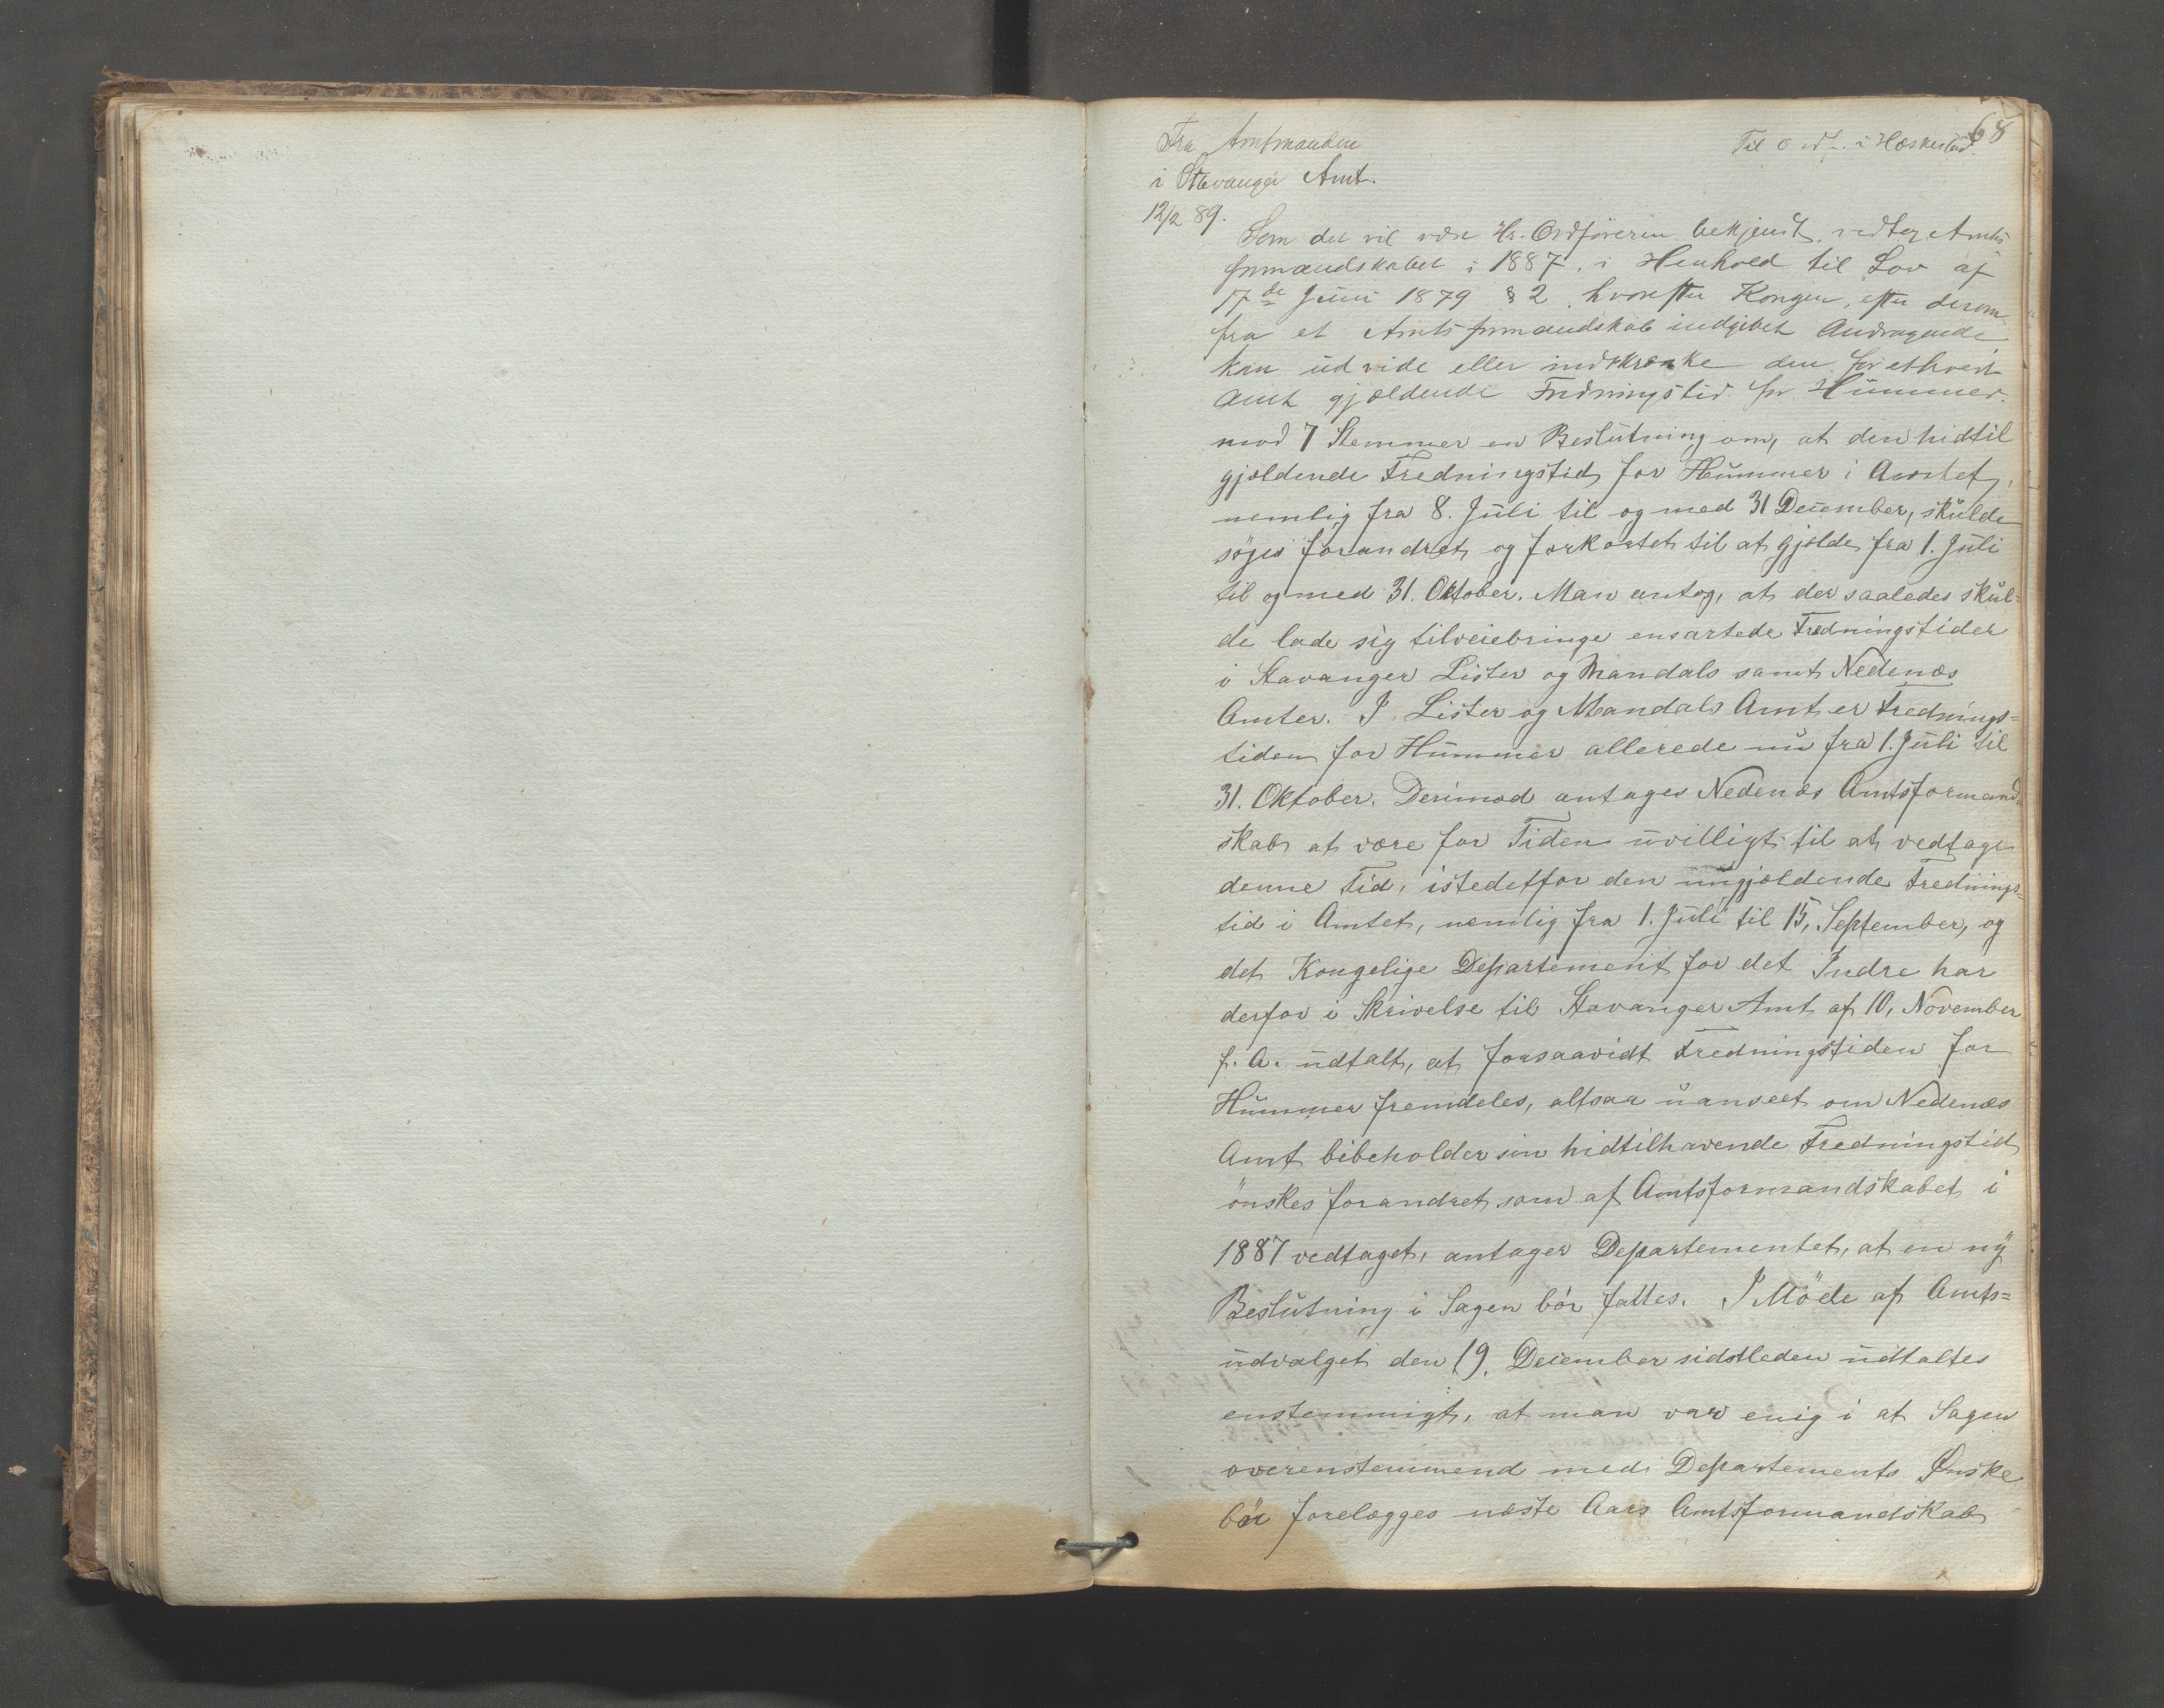 68
Fra Amtmanden
i Stavanger Amt.
Til Ordf. i Heskestad.
12/2 89.
Som det vil være Hr. Ordföreren bekjendt, vedtog Amts
formandskabet i 1887, i Henhold til Lov af
17de Juni 1879 § 2 hvorefter Kongen, efter derom
fra et Amtsformandskab indgivet Andragende
kan udvide eller indskrænke den for ethvert
Amt gjældende Fredningstid for Hummer.
mod 7 Stemmer en Beslutning om, at den hidtil
gjældende Fredningstid for Hummer i Amtet,
nemlig fra 8. Juli til og med 31 December, skulde
söges forandret og forkortet til at gjelde fra 1. Juli
til og med 31. Oktober. Man antog, at der saaledes skul=
de lade sig tilveiebringe ensartede Fredningstider
i Stavanger Lister og Mandals samt Nedenæs
Amter. I Lister og Mandals Amt er Frednings=
tiden for Hummer allerede nu fra 1. Juli til
31. Oktober. Derimod antages Nedenæs Amtsformand=
skab at være for Tiden uvilligt til at vedtage
denne Tid, istedetfor den nugjældende Frednings=
tid i Amtet, nemlig fra 1. Juli til 15, September, og
det Kongelige Departement for det Indre har
derfor i Skrivelse til Stavanger Amt af 10, November
f. A. udtalt, at forsaavidt Fredningstiden for
Hummer fremdeles, altsaa uanseet om Nedenæs
Amt bibeholder sin hidtilhavende Fredningstid
önskes forandret som af Amtsformandskabet i
1887 vedtaget, antager Departementet, at en ny
Beslutning i Sagen bör fattes. I Möde af Amts=
udvalget den 19. December sidstleden udtaltes
enstemmigt, at man var enig i at Sagen
overenstemmend med Departements Ønske
bör forelægges næste Aars Amtsformandskab